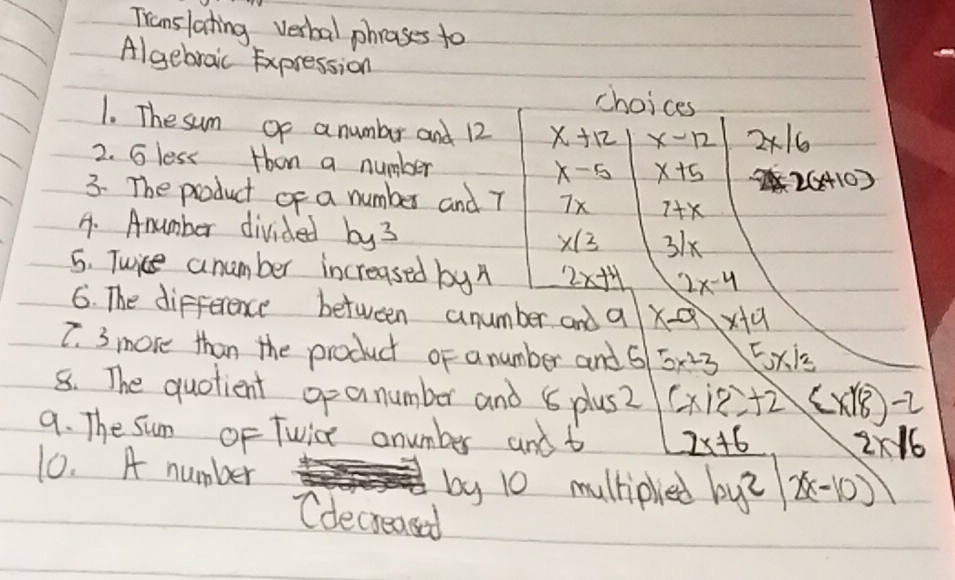 Translating verbal phrases to
Algebraic Expression
choices
1. The sum of a number and 12 | x+12 | x-12 | 2x/6
2. 5 less than a number | x-5 | x+5 | 2(x+10)
3. The product of a number and 7 | 7x | 7+x
4. A number divided by 3 | x/3 | 3/x
5. Twice a number increased by 4 | 2x+4 | 2x-4
6. The difference between a number and 9 | x-9 | x+9
7. 3 more than the product of a number and 5 | 5x+3
8. The quotient of a number and 8 plus 2 | (x/8)+2 | (x/8)-2
9. The sum of Twice a number and 6 | 2x+6 | 2x/6
10. A number by 10 multiplied by 2 | 2(x-10)
decreased